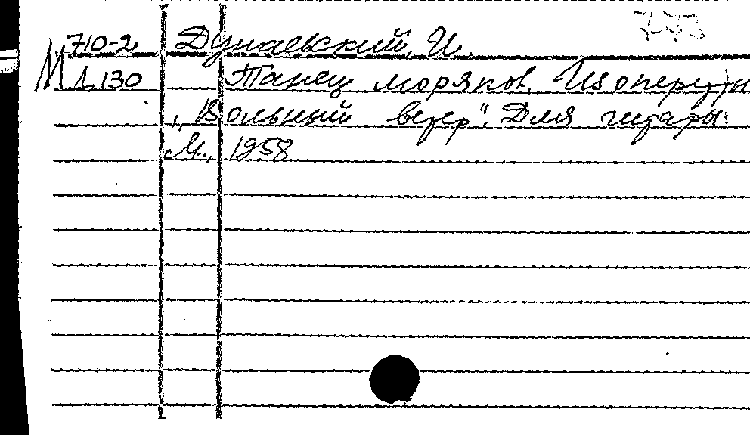 710-2 Дунаевский, И.
М Л130 Танец моряков. Из оперетты
„Вольный ветер". Для гитары.
М., 1958